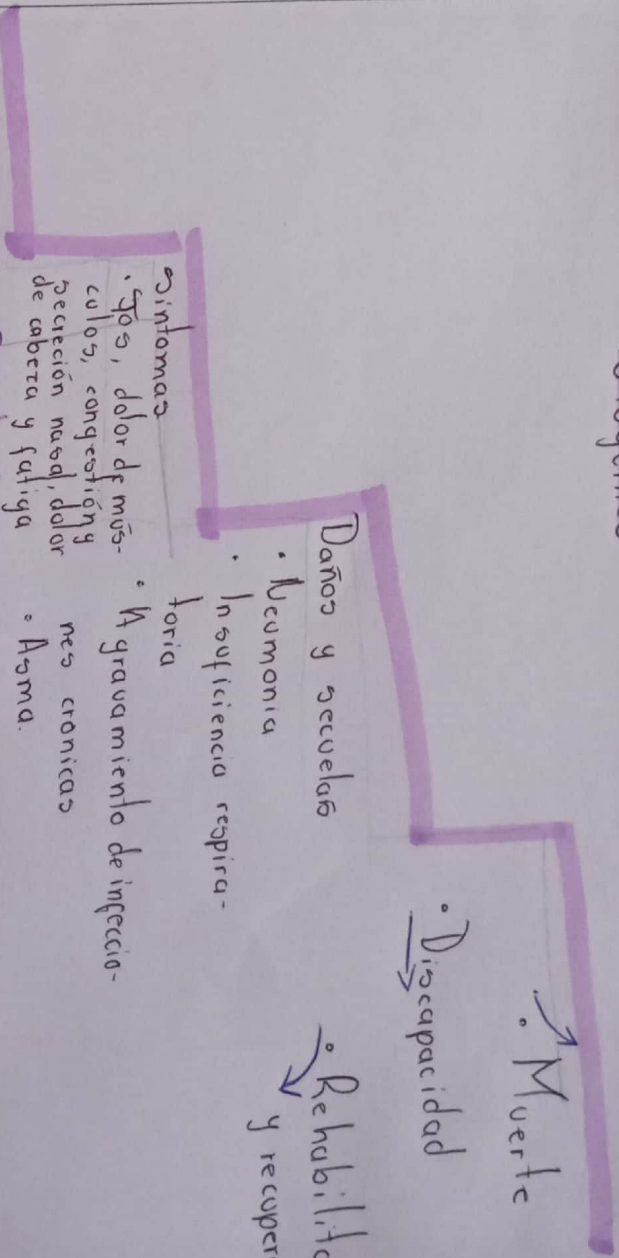 Muerte
• Discapacidad
• Rehabilita
y recuper
Daños y secuelas
• Neumonia
• Insuficiencia respira-
toria
• Agravamiento de infeccio-
nes cronicas
• Asma.
Sintomas
• Tos, dolor de mús-
culos, congestión y
secreción nasal, dolor
de cabeza y fatiga